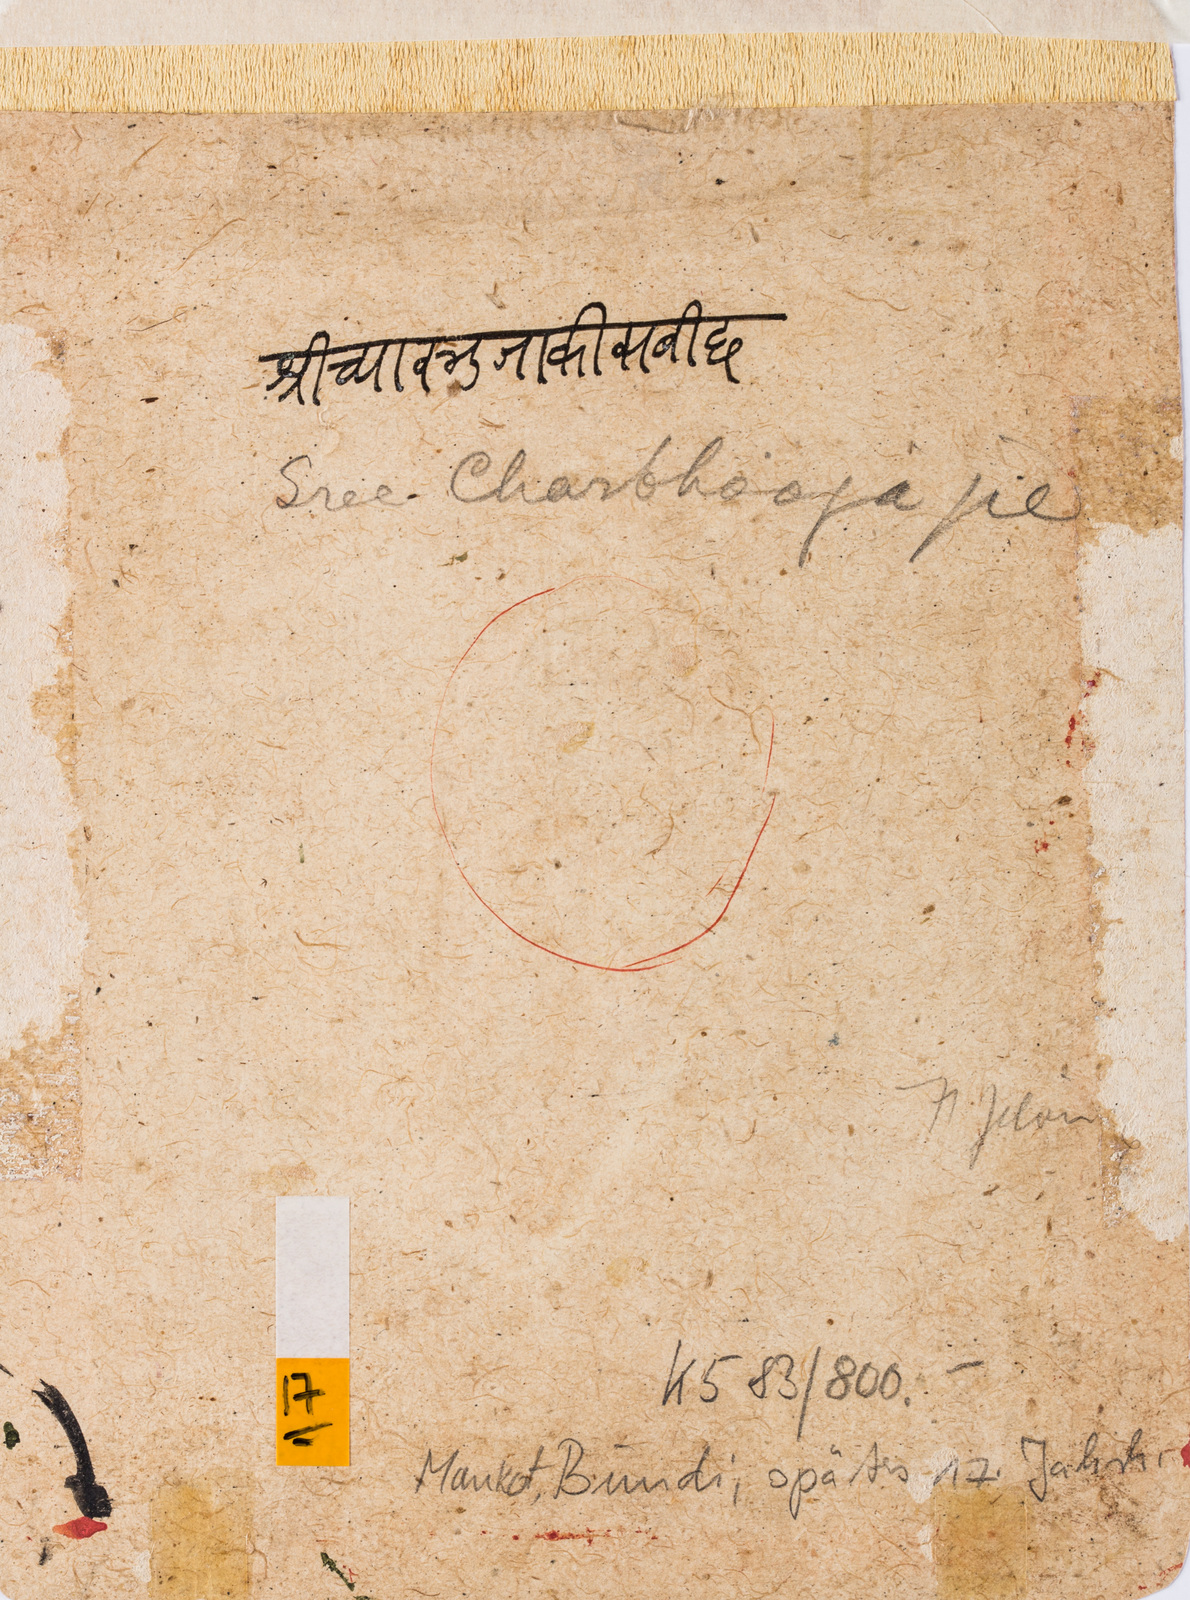 श्रीच्यारभुजाकीसबीछ
Sree Charbhooja jie
17
K5 83/800.-
Mankot, Bundi, spätes 17. Jahrh.